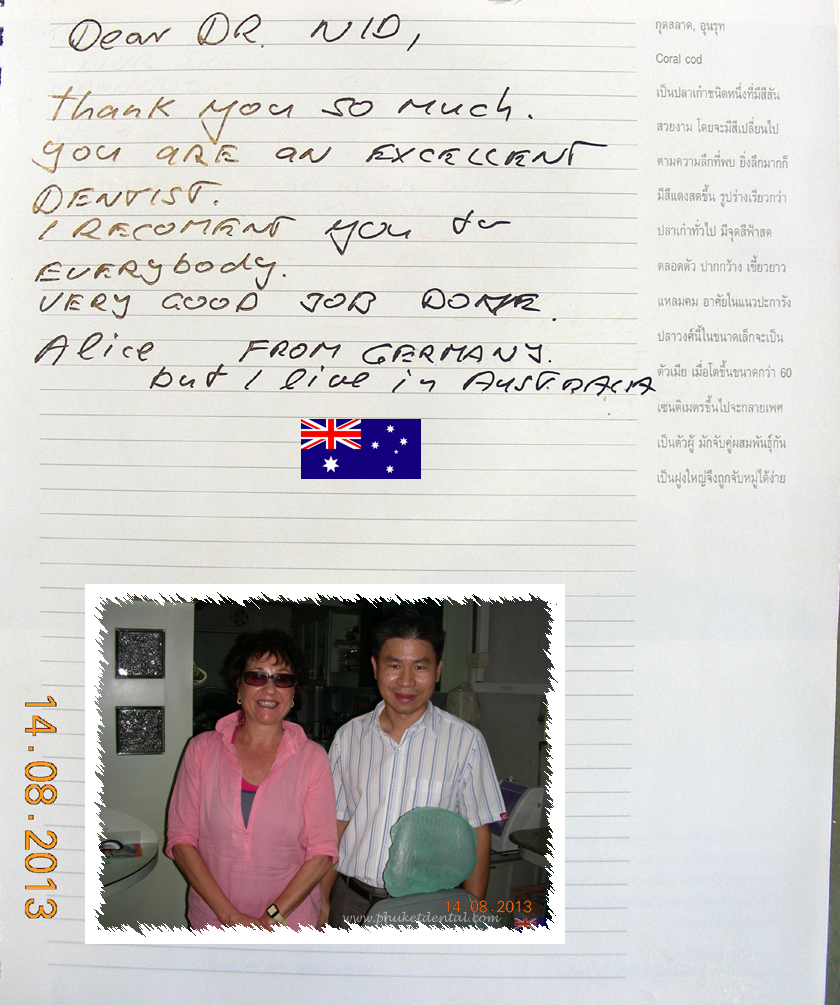 Dear DR. NID,
thank you so much.
you ARE AN EXCELLENT
DENTIST.
I RECOMENT you to
EVERybody.
VERY GOOD JOB DONE.
Alice FROM GERMANY.
but I live in AUSTRALIA
กุดสลาด, อุนรุท
Coral cod
เป็นปลาเก๋าชนิดหนึ่งที่มีสีสัน
สวยงาม โดยจะมีสีเปลี่ยนไป
ตามความลึกที่พบ ยิ่งลึกมากก็
มีสีแดงสดขึ้น รูปร่างเรียวกว่า
ปลาเก๋าทั่วไป มีจุดสีฟ้าสด
ตลอดตัว ปากกว้าง เขี้ยวยาว
แหลมคม อาศัยในแนวปะการัง
ปลาวงศ์นี้ในขนาดเล็กจะเป็น
ตัวเมีย เมื่อโตขึ้นขนาดกว่า 60
เซนติเมตรขึ้นไปจะกลายเพศ
เป็นตัวผู้ มักจับคู่ผสมพันธุ์กัน
เป็นฝูงใหญ่จึงถูกจับหมู่ได้ง่าย
14.08.2013
14.08.2013
www.phuketdental.com